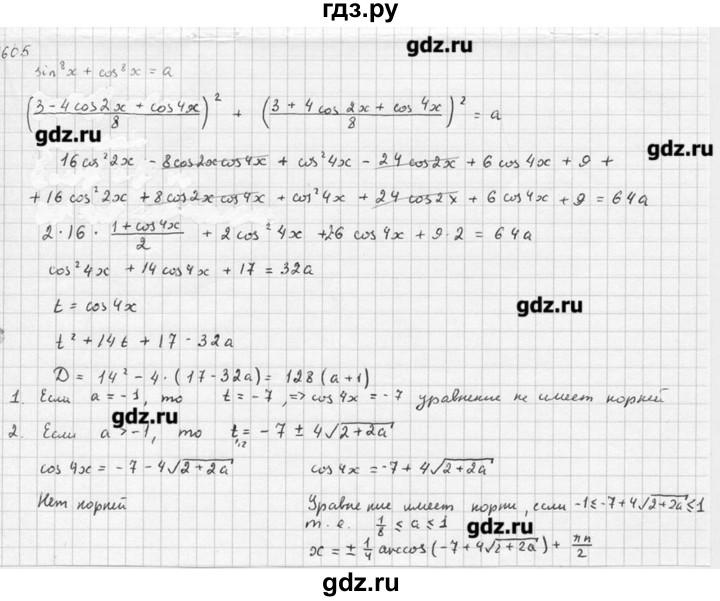 гдз.ру
605
gdz.ru
sin⁸x + cos⁸x = a
((3 - 4 cos2x + cos4x)/8)² + ((3 + 4 cos 2x + cos 4x)/8)² = a
gdz.ru
gdz.ru
16 cos²2x - 8cos2x cos4x + cos²4x - 24 cos2x + 6 cos4x + 9 +
+ 16 cos²2x + 8 cos2x cos4x + cos²4x + 24 cos2x + 6 cos4x + 9 = 64a
2 · 16 · (1 + cos4x)/2 + 2 cos²4x + 26 cos4x + 9·2 = 64a
cos²4x + 14 cos4x + 17 = 32a
t = cos4x
gdz.ru
t² + 14t + 17 - 32a
D = 14² - 4·(17 - 32a) = 128(a+1)
1. Если a = -1, то t = -7, => cos4x = -7 уравнение не имеет корней
gdz.ru
2. Если a > -1, то t₁,₂ = -7 ± 4√(2+2a)
cos4x = -7 - 4√(2+2a) cos4x = -7 + 4√(2+2a)
Нет корней Уравнение имеет корни, если -1 ≤ -7 + 4√(2+2a) ≤ 1
т. е. 1/8 ≤ a ≤ 1
gdz.ru
x = ± 1/4 arccos(-7 + 4√(2+2a)) + πn/2
gdz.ru